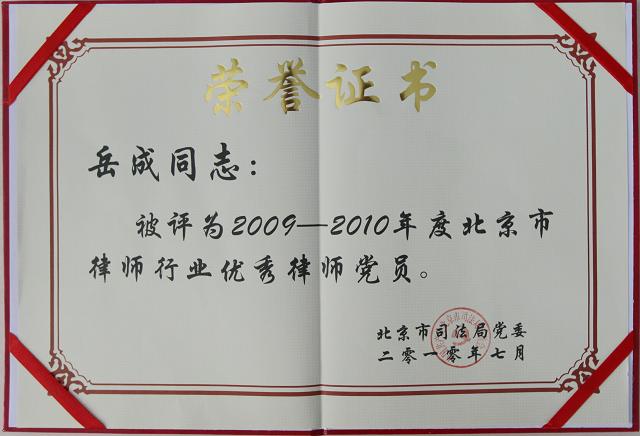 荣誉证书
岳成同志：
被评为2009—2010年度北京市
律师行业优秀律师党员。
北京市司法局党委
二零一零年七月